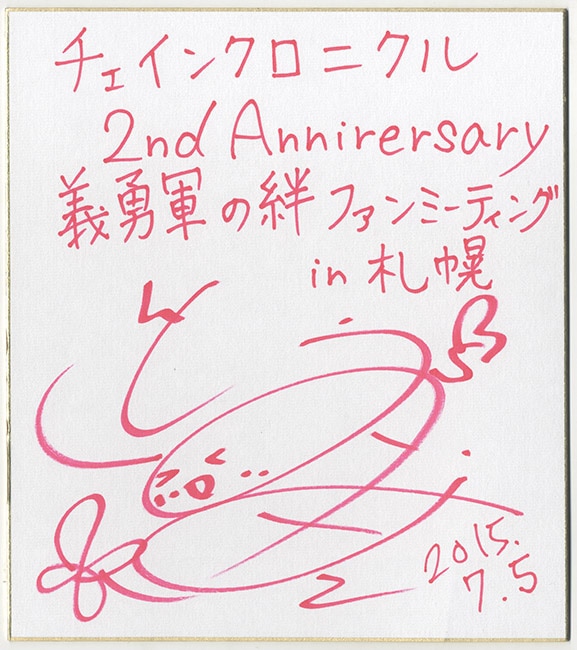 チェインクロニクル
2nd Annirersary
義勇軍の絆 ファンミーティング
in 札幌
2015.
7.5